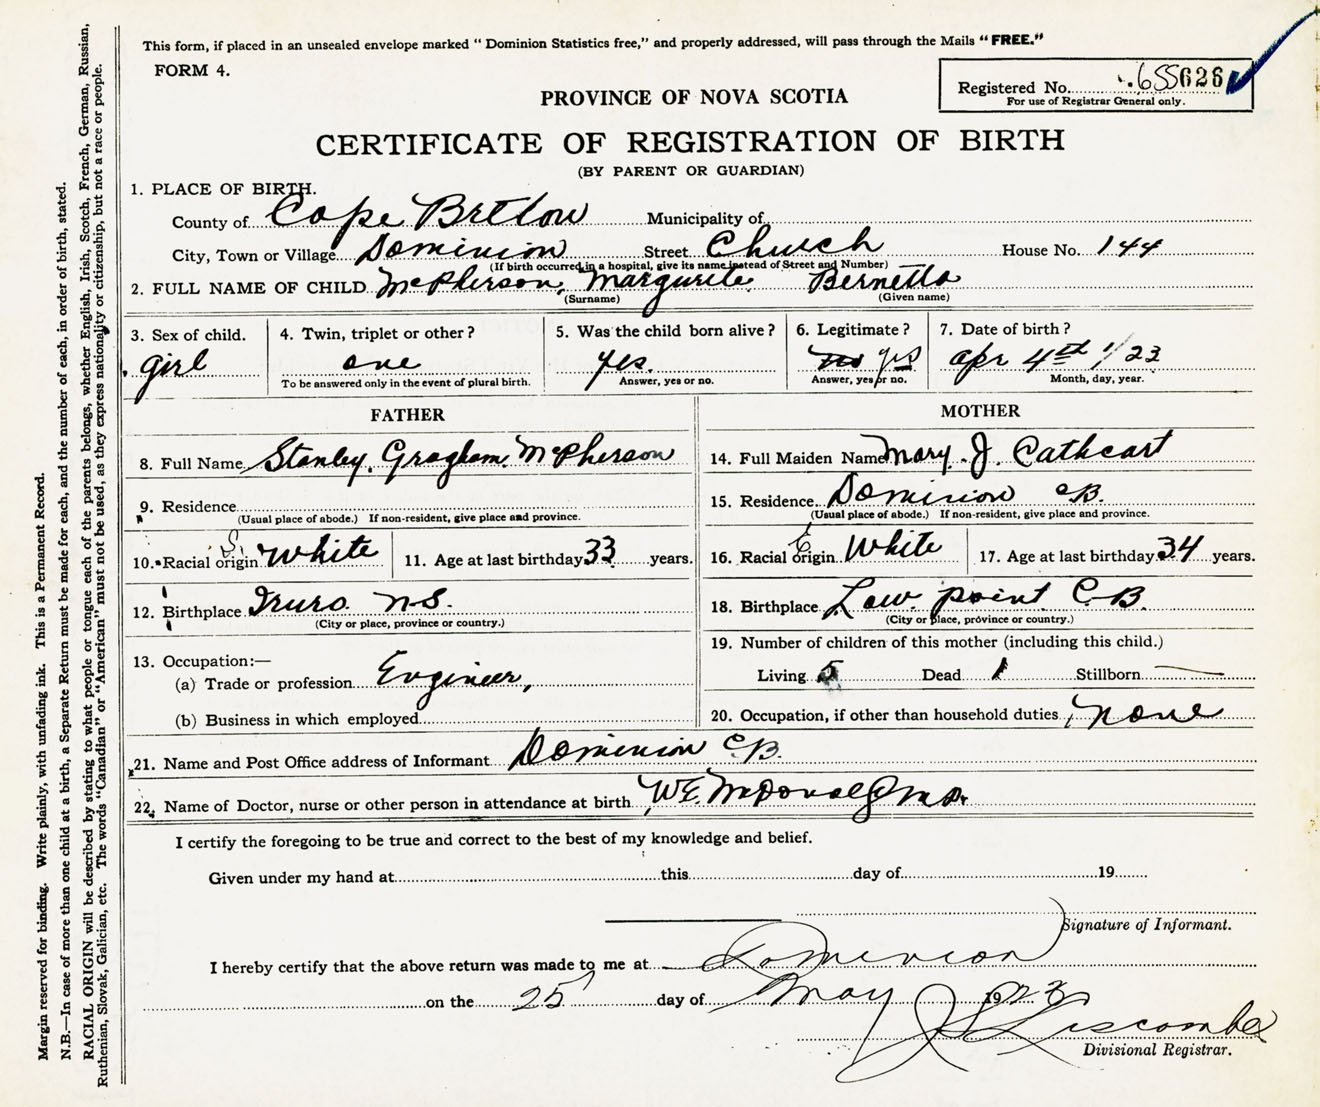 This form, if placed in an unsealed envelope marked “ Dominion Statistics free,” and properly addressed, will pass through the Mails “ FREE.”
FORM 4.
Registered No. 655626
For use of Registrar General only.
PROVINCE OF NOVA SCOTIA
CERTIFICATE OF REGISTRATION OF BIRTH
(BY PARENT OR GUARDIAN)
1. PLACE OF BIRTH.
County of Cape Breton Municipality of
City, Town or Village Dominion Street Church House No. 144
(If birth occurred in a hospital, give its name instead of Street and Number)
2. FULL NAME OF CHILD McPherson, Margurite Bernetta
(Surname) (Given name)
3. Sex of child. 4. Twin, triplet or other ? 5. Was the child born alive ? 6. Legitimate ? 7. Date of birth ?
girl one yes. no yes Apr 4th 1/23
To be answered only in the event of plural birth. Answer, yes or no. Answer, yes or no. Month, day, year.
FATHER
8. Full Name Stanley. Gragham. McPherson
9. Residence
(Usual place of abode.) If non-resident, give place and province.
10. Racial origin S. White 11. Age at last birthday 33 years.
12. Birthplace Truro N.S.
(City or place, province or country.)
13. Occupation:—
(a) Trade or profession Engineer,
(b) Business in which employed
MOTHER
14. Full Maiden Name Mary. J. Cathcart
15. Residence Dominion C.B.
(Usual place of abode.) If non-resident, give place and province.
16. Racial origin E White 17. Age at last birthday 34 years.
18. Birthplace Low point C.B.
(City or place, province or country.)
19. Number of children of this mother (including this child.)
Living 5 Dead 1 Stillborn —
20. Occupation, if other than household duties none
21. Name and Post Office address of Informant Dominion C.B.
22. Name of Doctor, nurse or other person in attendance at birth W.E. McDonald M.D.
I certify the foregoing to be true and correct to the best of my knowledge and belief.
Given under my hand at this day of 19
Signature of Informant.
I hereby certify that the above return was made to me at Dominion
on the 25 day of May 1923
Liscombe
Divisional Registrar.
Margin reserved for binding. Write plainly, with unfading ink. This is a Permanent Record.
N.B.—In case of more than one child at a birth, a Separate Return must be made for each, and the number of each, in order of birth, stated.
RACIAL ORIGIN will be described by stating to what people or tongue each of the parents belongs, whether English, Irish, Scotch, French, German, Russian,
Ruthenian, Slovak, Galician, etc. The words “Canadian” or “American” must not be used, as they express nationality or citizenship, but not a race or people.